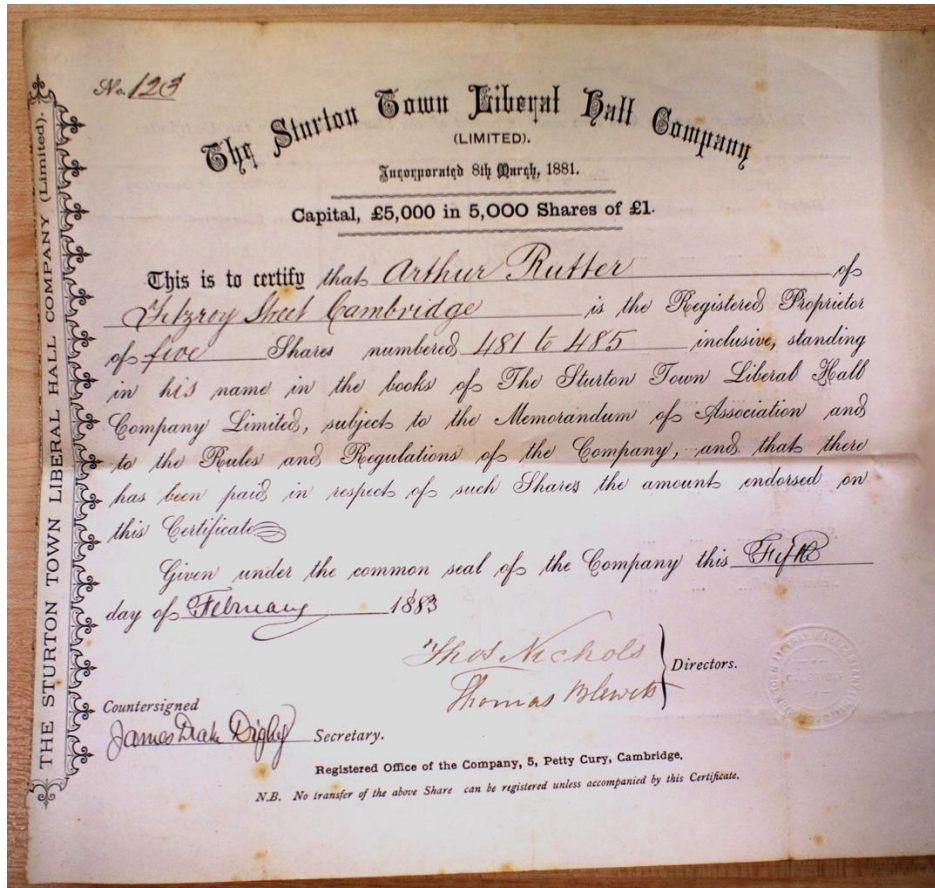 No. 123
The Sturton Town Liberal Hall Company
(LIMITED).
Incorporated 8th March, 1881.
Capital, £5,000 in 5,000 Shares of £1.
This is to certify that Arthur Rutter of
Fitzroy Street Cambridge is the Registered Proprietor
of five Shares numbered 481 to 485 inclusive, standing
in his name in the books of The Sturton Town Liberal Hall
Company Limited, subject to the Memorandum of Association and
to the Rules and Regulations of the Company, and that there
has been paid in respect of such Shares the amount endorsed on
this Certificate
Given under the common seal of the Company this Fifth
day of February 1883
Thos Nichols
Thomas Blewitt
Directors.
Countersigned
James Drake Digby Secretary.
Registered Office of the Company, 5, Petty Cury, Cambridge.
N.B. No transfer of the above Share can be registered unless accompanied by this Certificate.
THE STURTON TOWN LIBERAL HALL COMPANY (Limited).